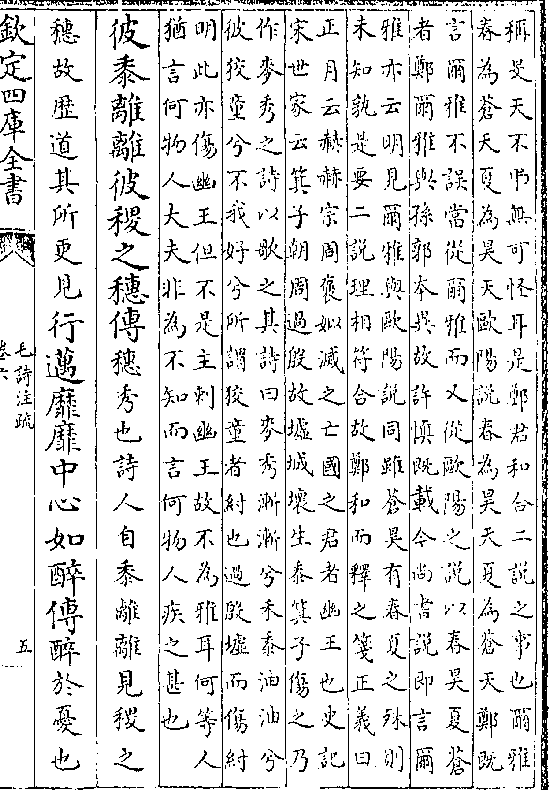 稱旻天不弔無可怪耳是鄭君和合二說之事也爾雅
春為蒼天夏為昊天歐陽說春為昊天夏為蒼天鄭既
言爾雅不誤當從爾雅而又從歐陽之說以春昊夏蒼
者鄭爾雅與孫郭本異故許慎既載今尚書說即言爾
雅亦云明見爾雅與歐陽說同雖蒼昊有春夏之殊則
未知孰是要二說理相符合故鄭和而釋之箋正義曰
正月云赫赫宗周褒姒滅之亡國之君者幽王也史記
宋世家云箕子朝周過殷故墟城壞生黍箕子傷之乃
作麥秀之詩以歌之其詩曰麥秀漸漸兮禾黍油油兮
彼狡童兮不我好兮所謂狡童者紂也過殷墟而傷紂
明此亦傷幽王但不是主刺幽王故不為雅耳何等人
猶言何物人大夫非為不知而言何物人疾之甚也
彼黍離離彼稷之穗傳穗秀也詩人自黍離離見稷之
穗故歴道其所更見行邁靡靡中心如醉傳醉於憂也
欽定四庫全書
毛詩注疏
卷六
五